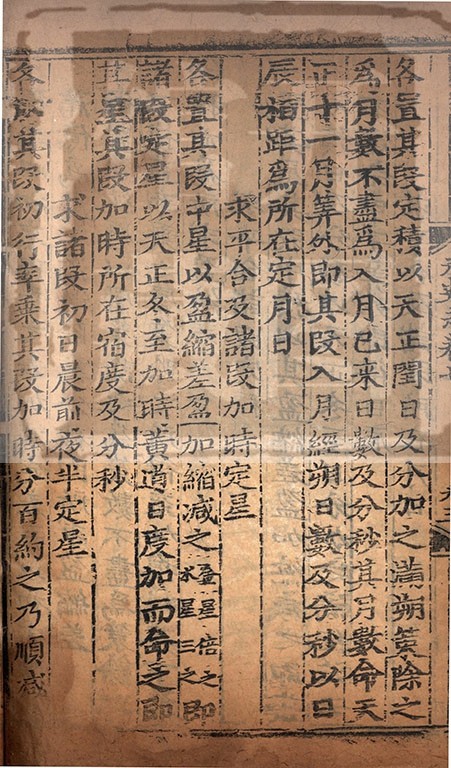 各置其段定積以天正閏日及分加之滿朔策除之
爲月數不盡爲入月已來日數及分秒其月數命天
正十一月筭外即其段入月經朔日數及分秒以日
辰相距爲所在定月日
求平合及諸段加時定星
各置其段中星以盈縮差盈加縮減之金星倍之水星三之即
諸段定星以天正冬至加時黃道日度加而命之即
其星其段加時所在宿度及分秒
求諸段初日晨前夜半定星
各以其段初行率乘其段加時分百約之乃順減